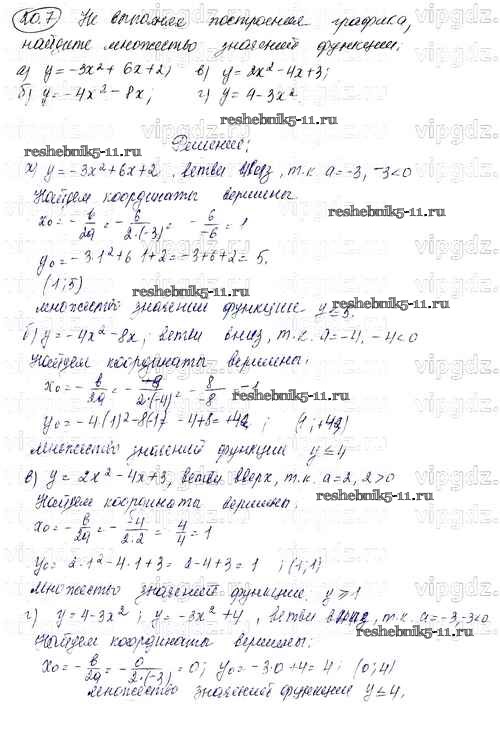 20.7 Не выполняя построения графика,
найдите множество значений функции:
а) y=-3x²+6x+2; в) y=2x²-4x+3;
б) y=-4x²-8x; г) y=4-3x².
reshebnik5-11.ru
Решение:
reshebnik5-11.ru
а) y=-3x²+6x+2, ветви вниз, т.к. a=-3, -3<0
Найдем координаты вершины.
x₀=-b/2a=-6/2·(-3)=-6/-6=1
reshebnik5-11.ru
y₀=-3·1²+6·1+2=-3+6+2=5.
(1;5)
reshebnik5-11.ru
множество значений функции y≤5.
б) y=-4x²-8x; ветви вниз, т.к. a=-4, -4<0
Найдем координаты вершины:
x₀=-b/2a=-8/2·(-4)=8/-8=-1
reshebnik5-11.ru
y₀=-4·(1)²-8·(1)=-4+8=+4; (1;+4)
множество значений функции y≤4
в) y=2x²-4x+3, ветви вверх, т.к. a=2, 2>0
Найдем координаты вершины:
reshebnik5-11.ru
x₀=-b/2a=--4/2·2=4/4=1
y₀=2·1²-4·1+3=2-4+3=1; (1;1)
множество значений функции, y≥1
г) y=4-3x²; y=-3x²+4, ветви вниз, т.к. a=-3,-3<0
Найдем координаты вершины:
x₀=-b/2a=-0/2·(-3)=0; y₀=-3·0+4=4; (0;4)
множество значений функции y≤4.